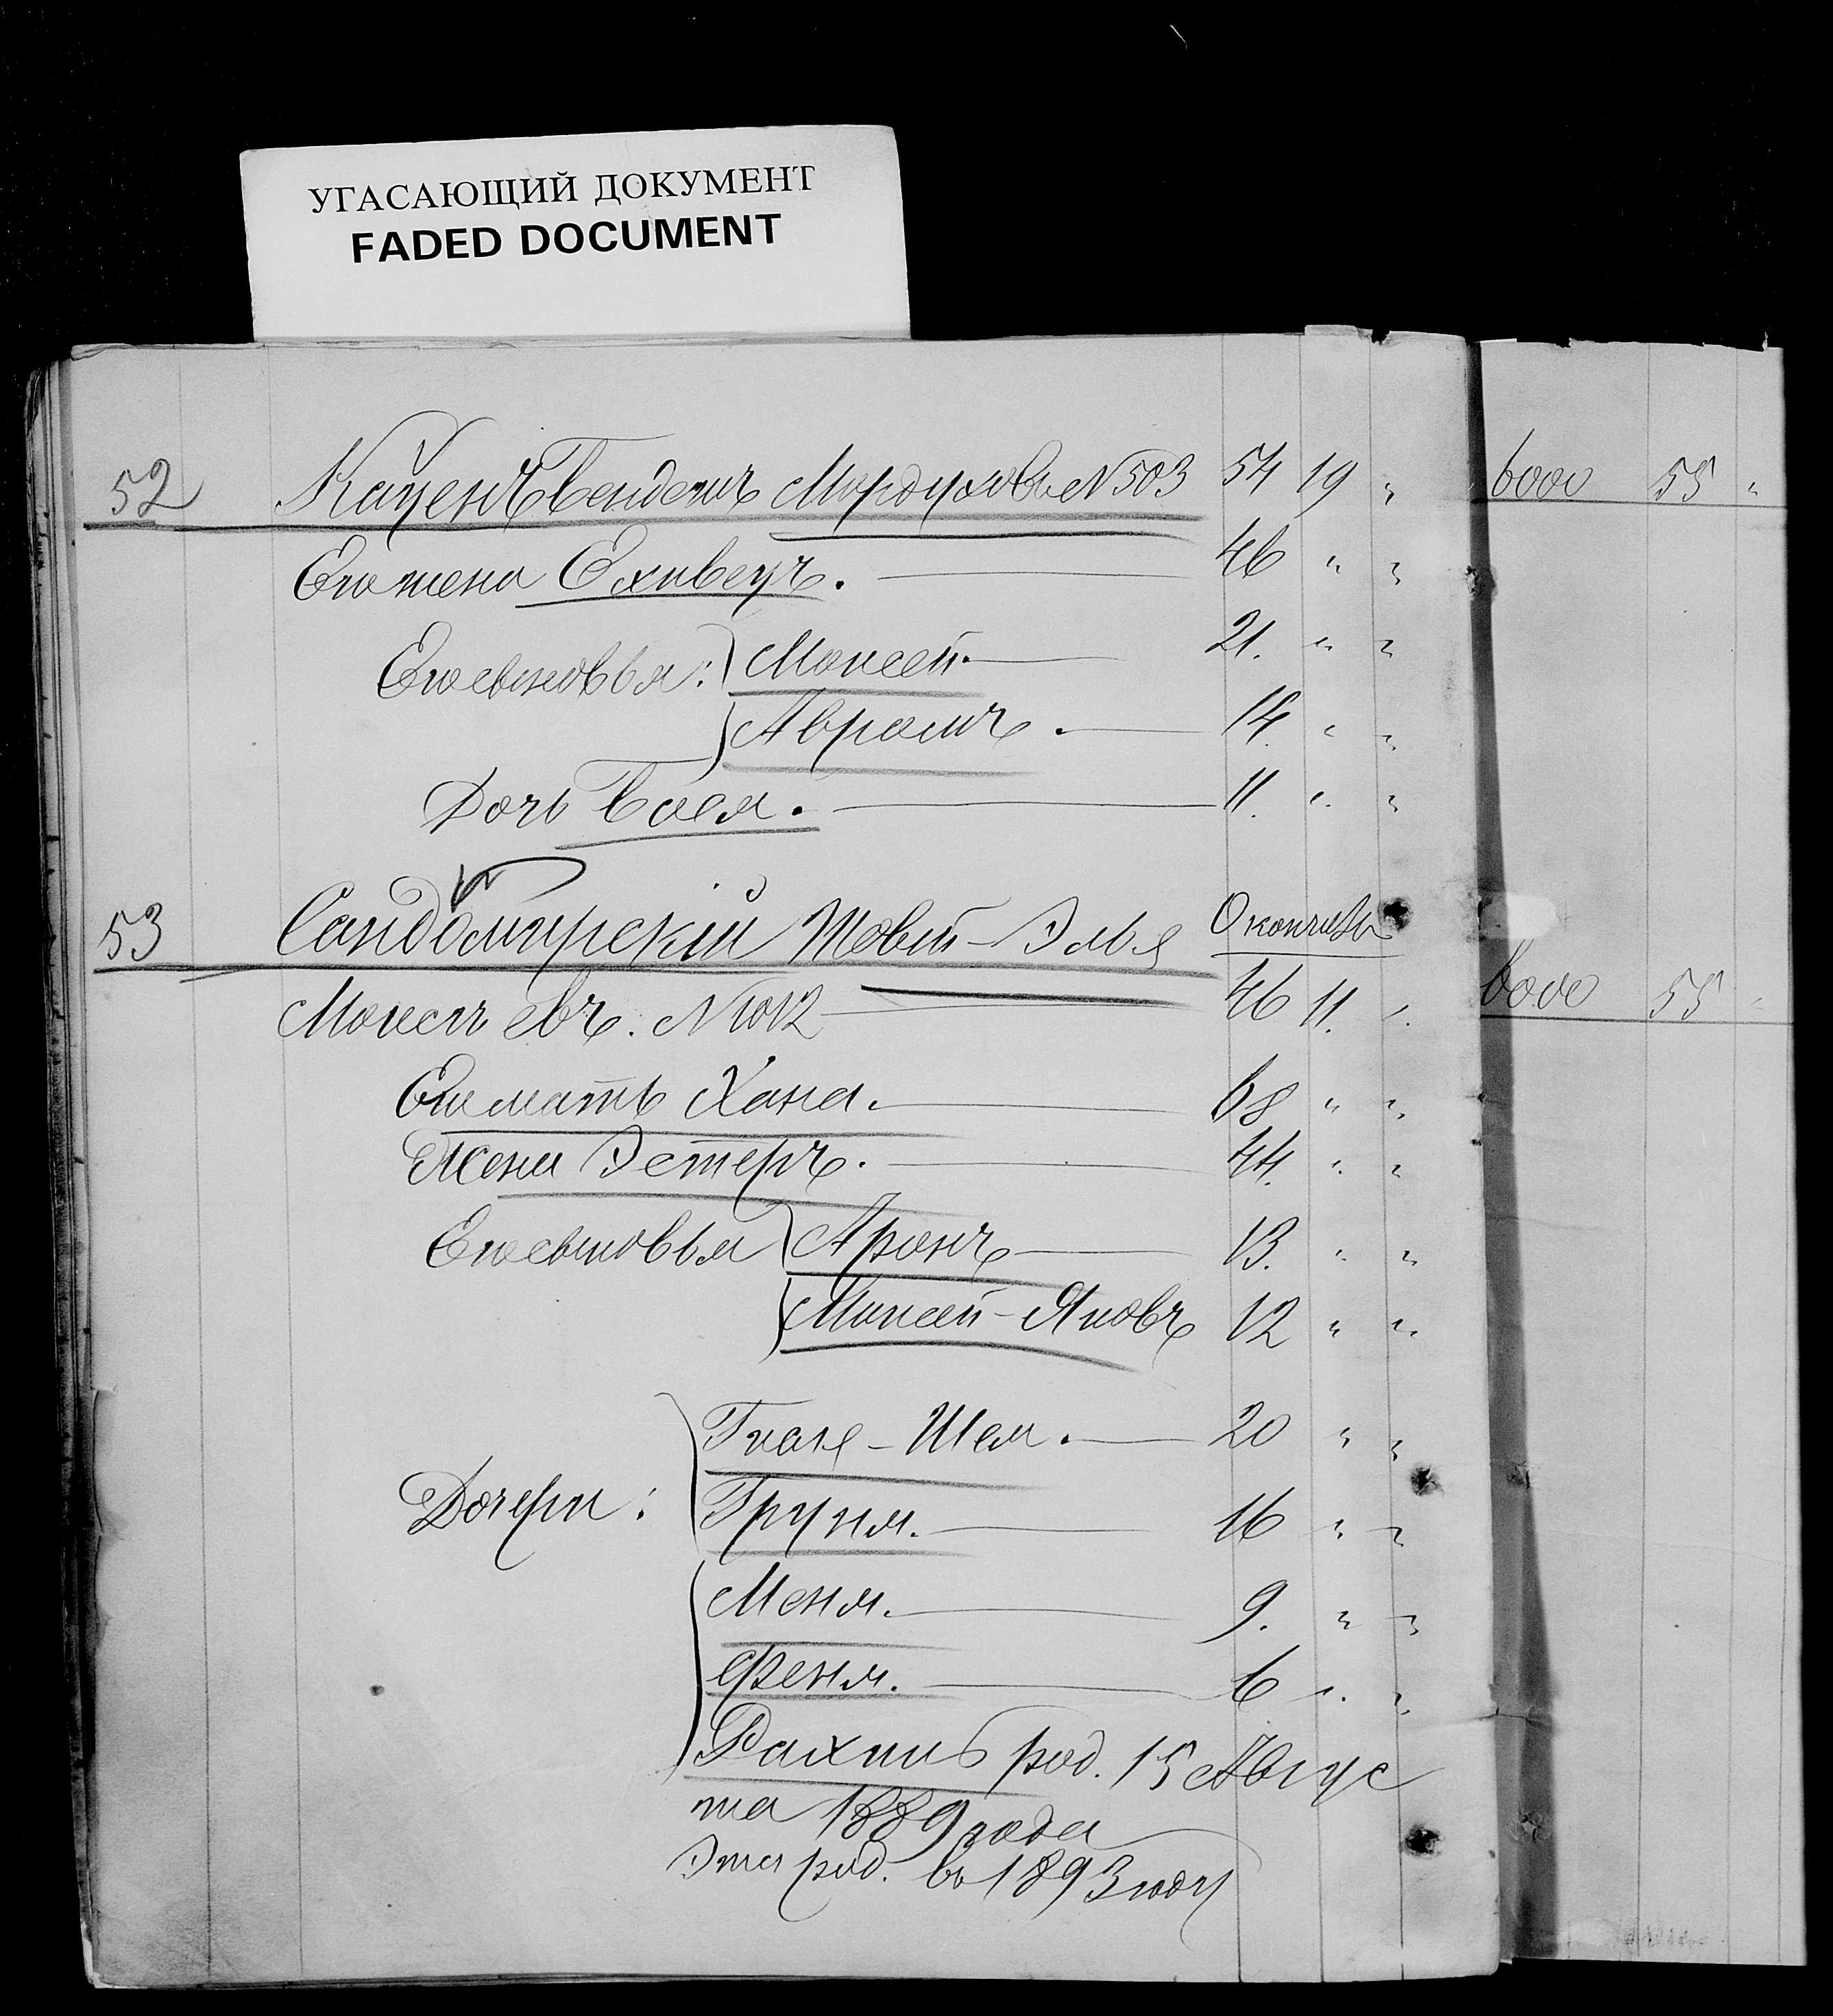 УГАСАЮЩИЙ ДОКУМЕНТ
FADED DOCUMENT
52 Каценъ Бендетъ Мордуховъ N 503 54 19 „ 6000 55 „
Его жена Ехивецъ. 46 „ „
Его сыновья: Моисей. 21. „ „
Абрамъ. 14. „ „
Дочь Бася. 11. „ „
53 Сандомирскій Товій-Элья Окончилъ
Моисеевъ. N 1012 46 11. „ 6000 55 „
Его мать Хана. 68 „ „
Жена Эстеръ. 44. „ „
Его сыновья Аронъ 13. „ „
Моисей-Яковъ 12 „ „
-Шея. 20 „ „
Дочери: Груня. 16 „ „
Меня. 9. „ „
Феня. 6 „ „
Рахиль род. 15 Авгус
та 1889 года
Эта род. въ 1893 году